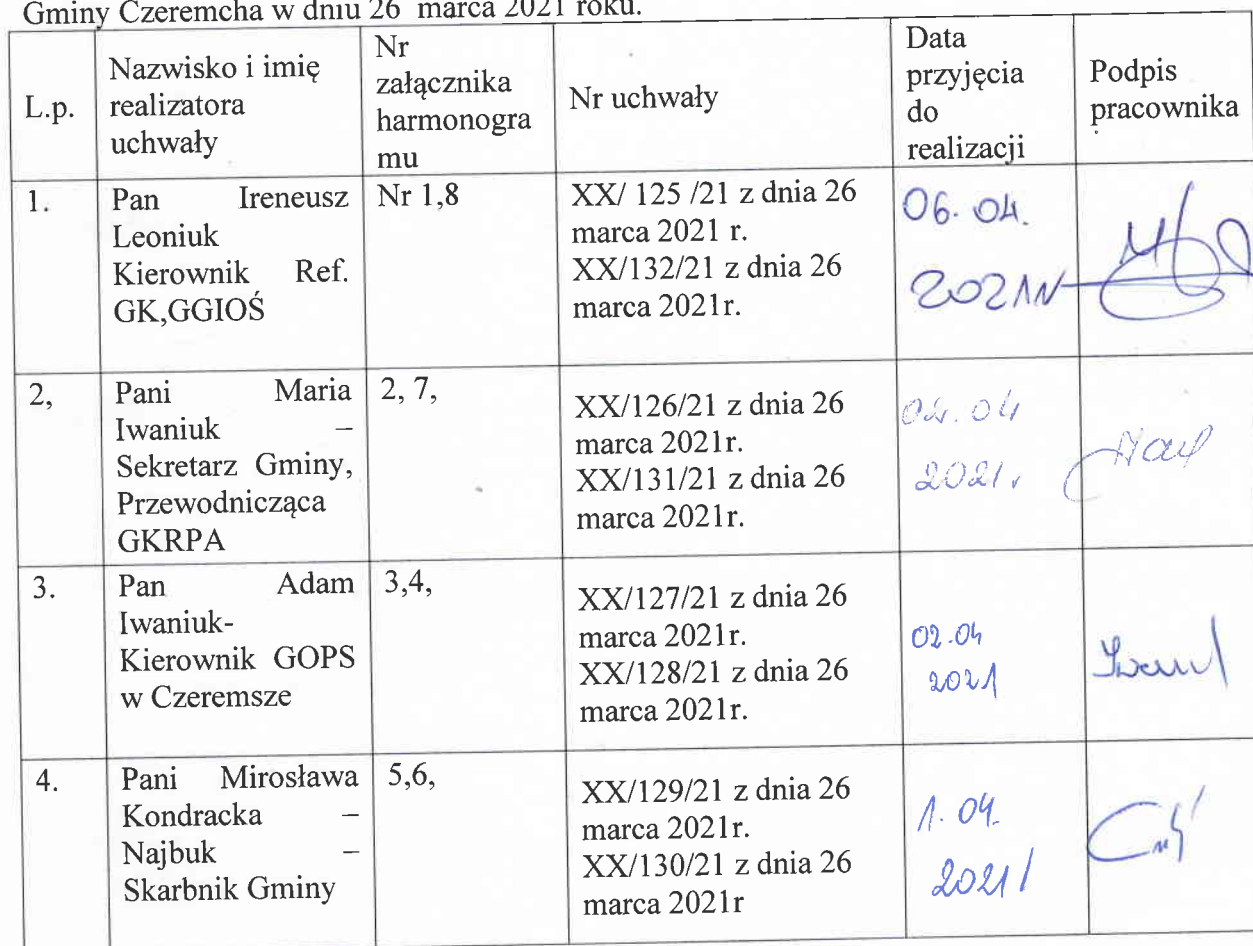 Gminy Czeremcha w dniu 26 marca 2021 roku.
L.p.
Nazwisko i imię
realizatora
uchwały
Nr
załącznika
harmonogra
mu
Nr uchwały
Data
przyjęcia
do
realizacji
Podpis
pracownika
1.
Pan Ireneusz
Leoniuk
Kierownik Ref.
GK,GGIOŚ
Nr 1,8
XX/ 125 /21 z dnia 26
marca 2021 r.
XX/132/21 z dnia 26
marca 2021r.
06. 04.
2021
2,
Pani Maria
Iwaniuk –
Sekretarz Gminy,
Przewodnicząca
GKRPA
2, 7,
XX/126/21 z dnia 26
marca 2021r.
XX/131/21 z dnia 26
marca 2021r.
2021r
3.
Pan Adam
Iwaniuk-
Kierownik GOPS
w Czeremsze
3,4,
XX/127/21 z dnia 26
marca 2021r.
XX/128/21 z dnia 26
marca 2021r.
02.04
2021
4.
Pani Mirosława
Kondracka –
Najbuk –
Skarbnik Gminy
5,6,
XX/129/21 z dnia 26
marca 2021r.
XX/130/21 z dnia 26
marca 2021r
1. 04.
2021